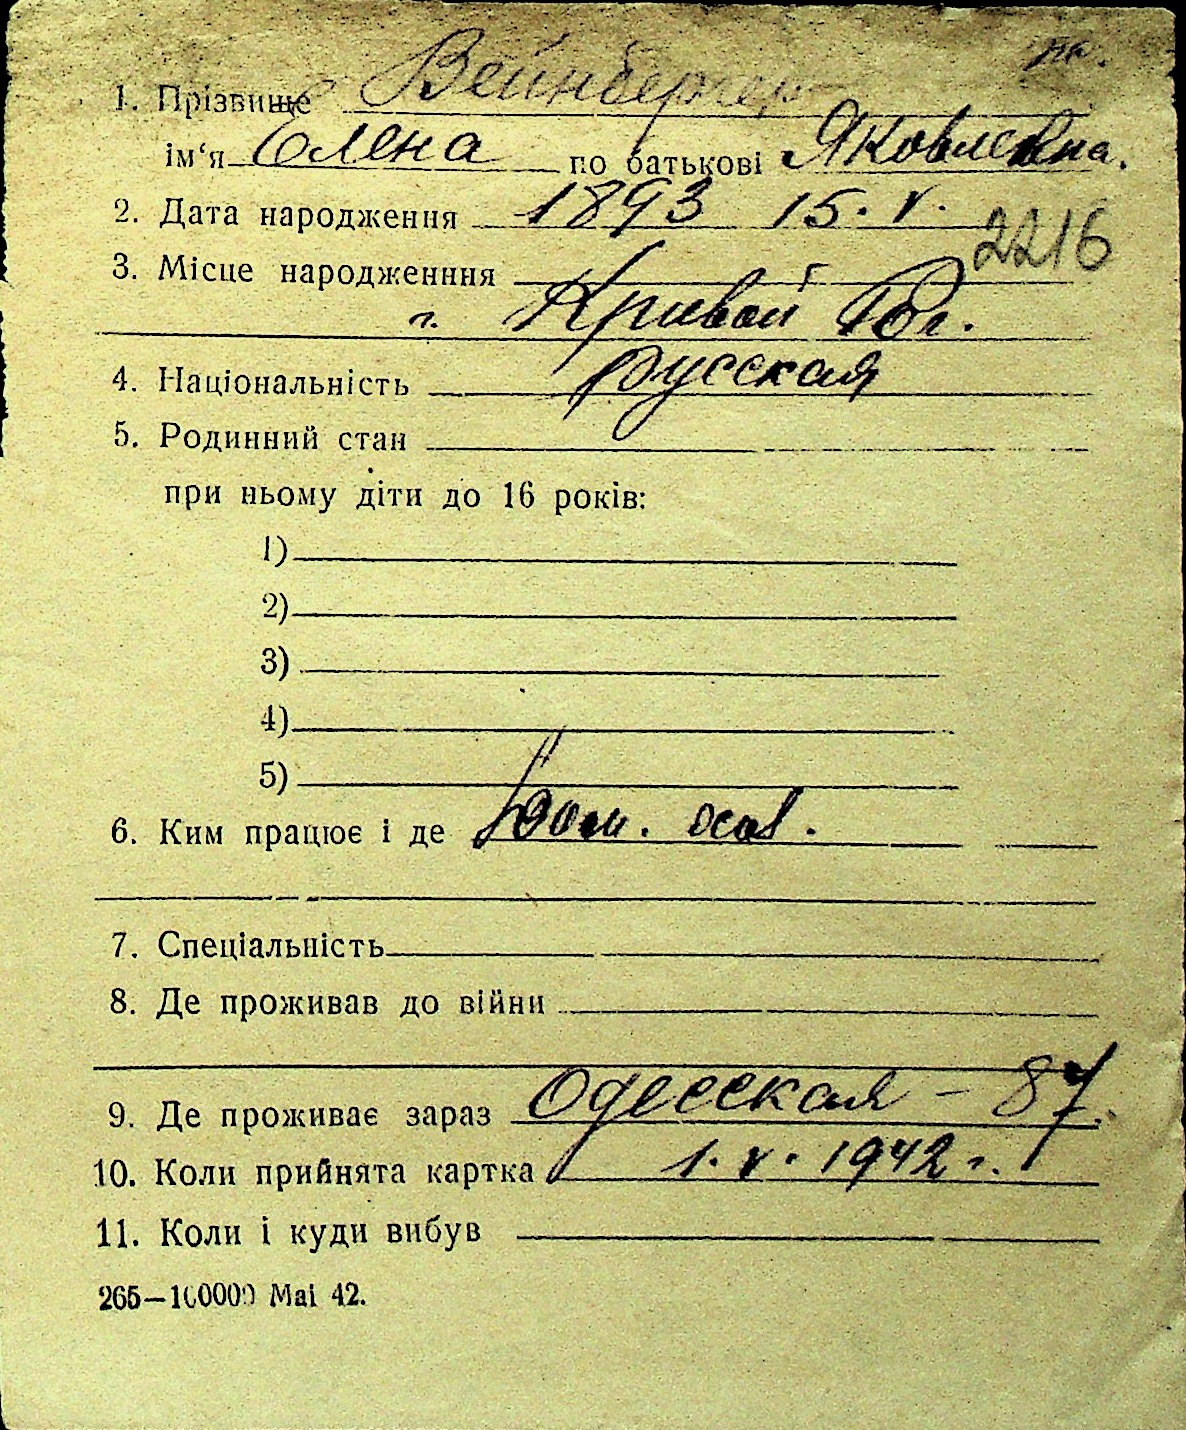 1. Прізвище Вейнбергер
ім‘я Елена по батькові Яковлевна.
2. Дата народження 1893 15. V.
2216
3. Місце народженння
г. Кривой Рог.
4. Національність русская
5. Родинний стан
при ньому діти до 16 років:
1)
2)
3)
4)
5)
6. Ким працює і де Дом.
7. Спеціальність
8. Де проживав до війни
9. Де проживає зараз Одесская – 87.
10. Коли прийнята картка 1. V. 1942 г.
11. Коли і куди вибув
265—100000 Mai 42.